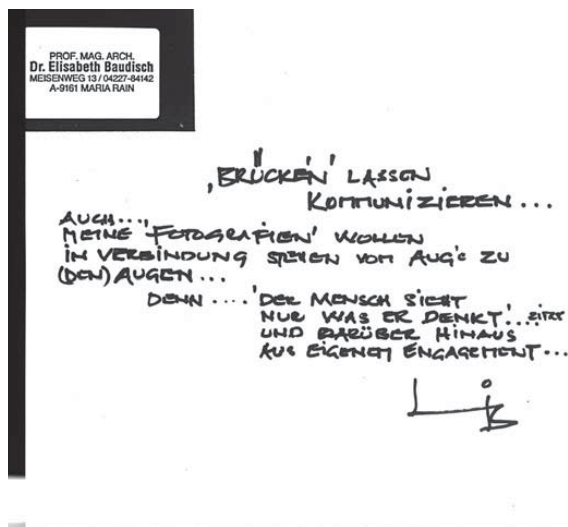 PROF. MAG. ARCH.
Dr. Elisabeth Baudisch
MEISENWEG 13 / 04227-84142
A-9161 MARIA RAIN
‚BRÜCKEN' LASSEN
KOMMUNIZIEREN...
AUCH...,
MEINE 'FOTOGRAFIEN' WOLLEN
IN VERBINDUNG STEHEN VOM AUG'E ZU
(DEN) AUGEN...
DENN .... 'DER MENSCH SIEHT
NUR WAS ER DENKT'... ZITAT
UND DARÜBER HINAUS
AUS EIGENEM ENGAGEMENT...